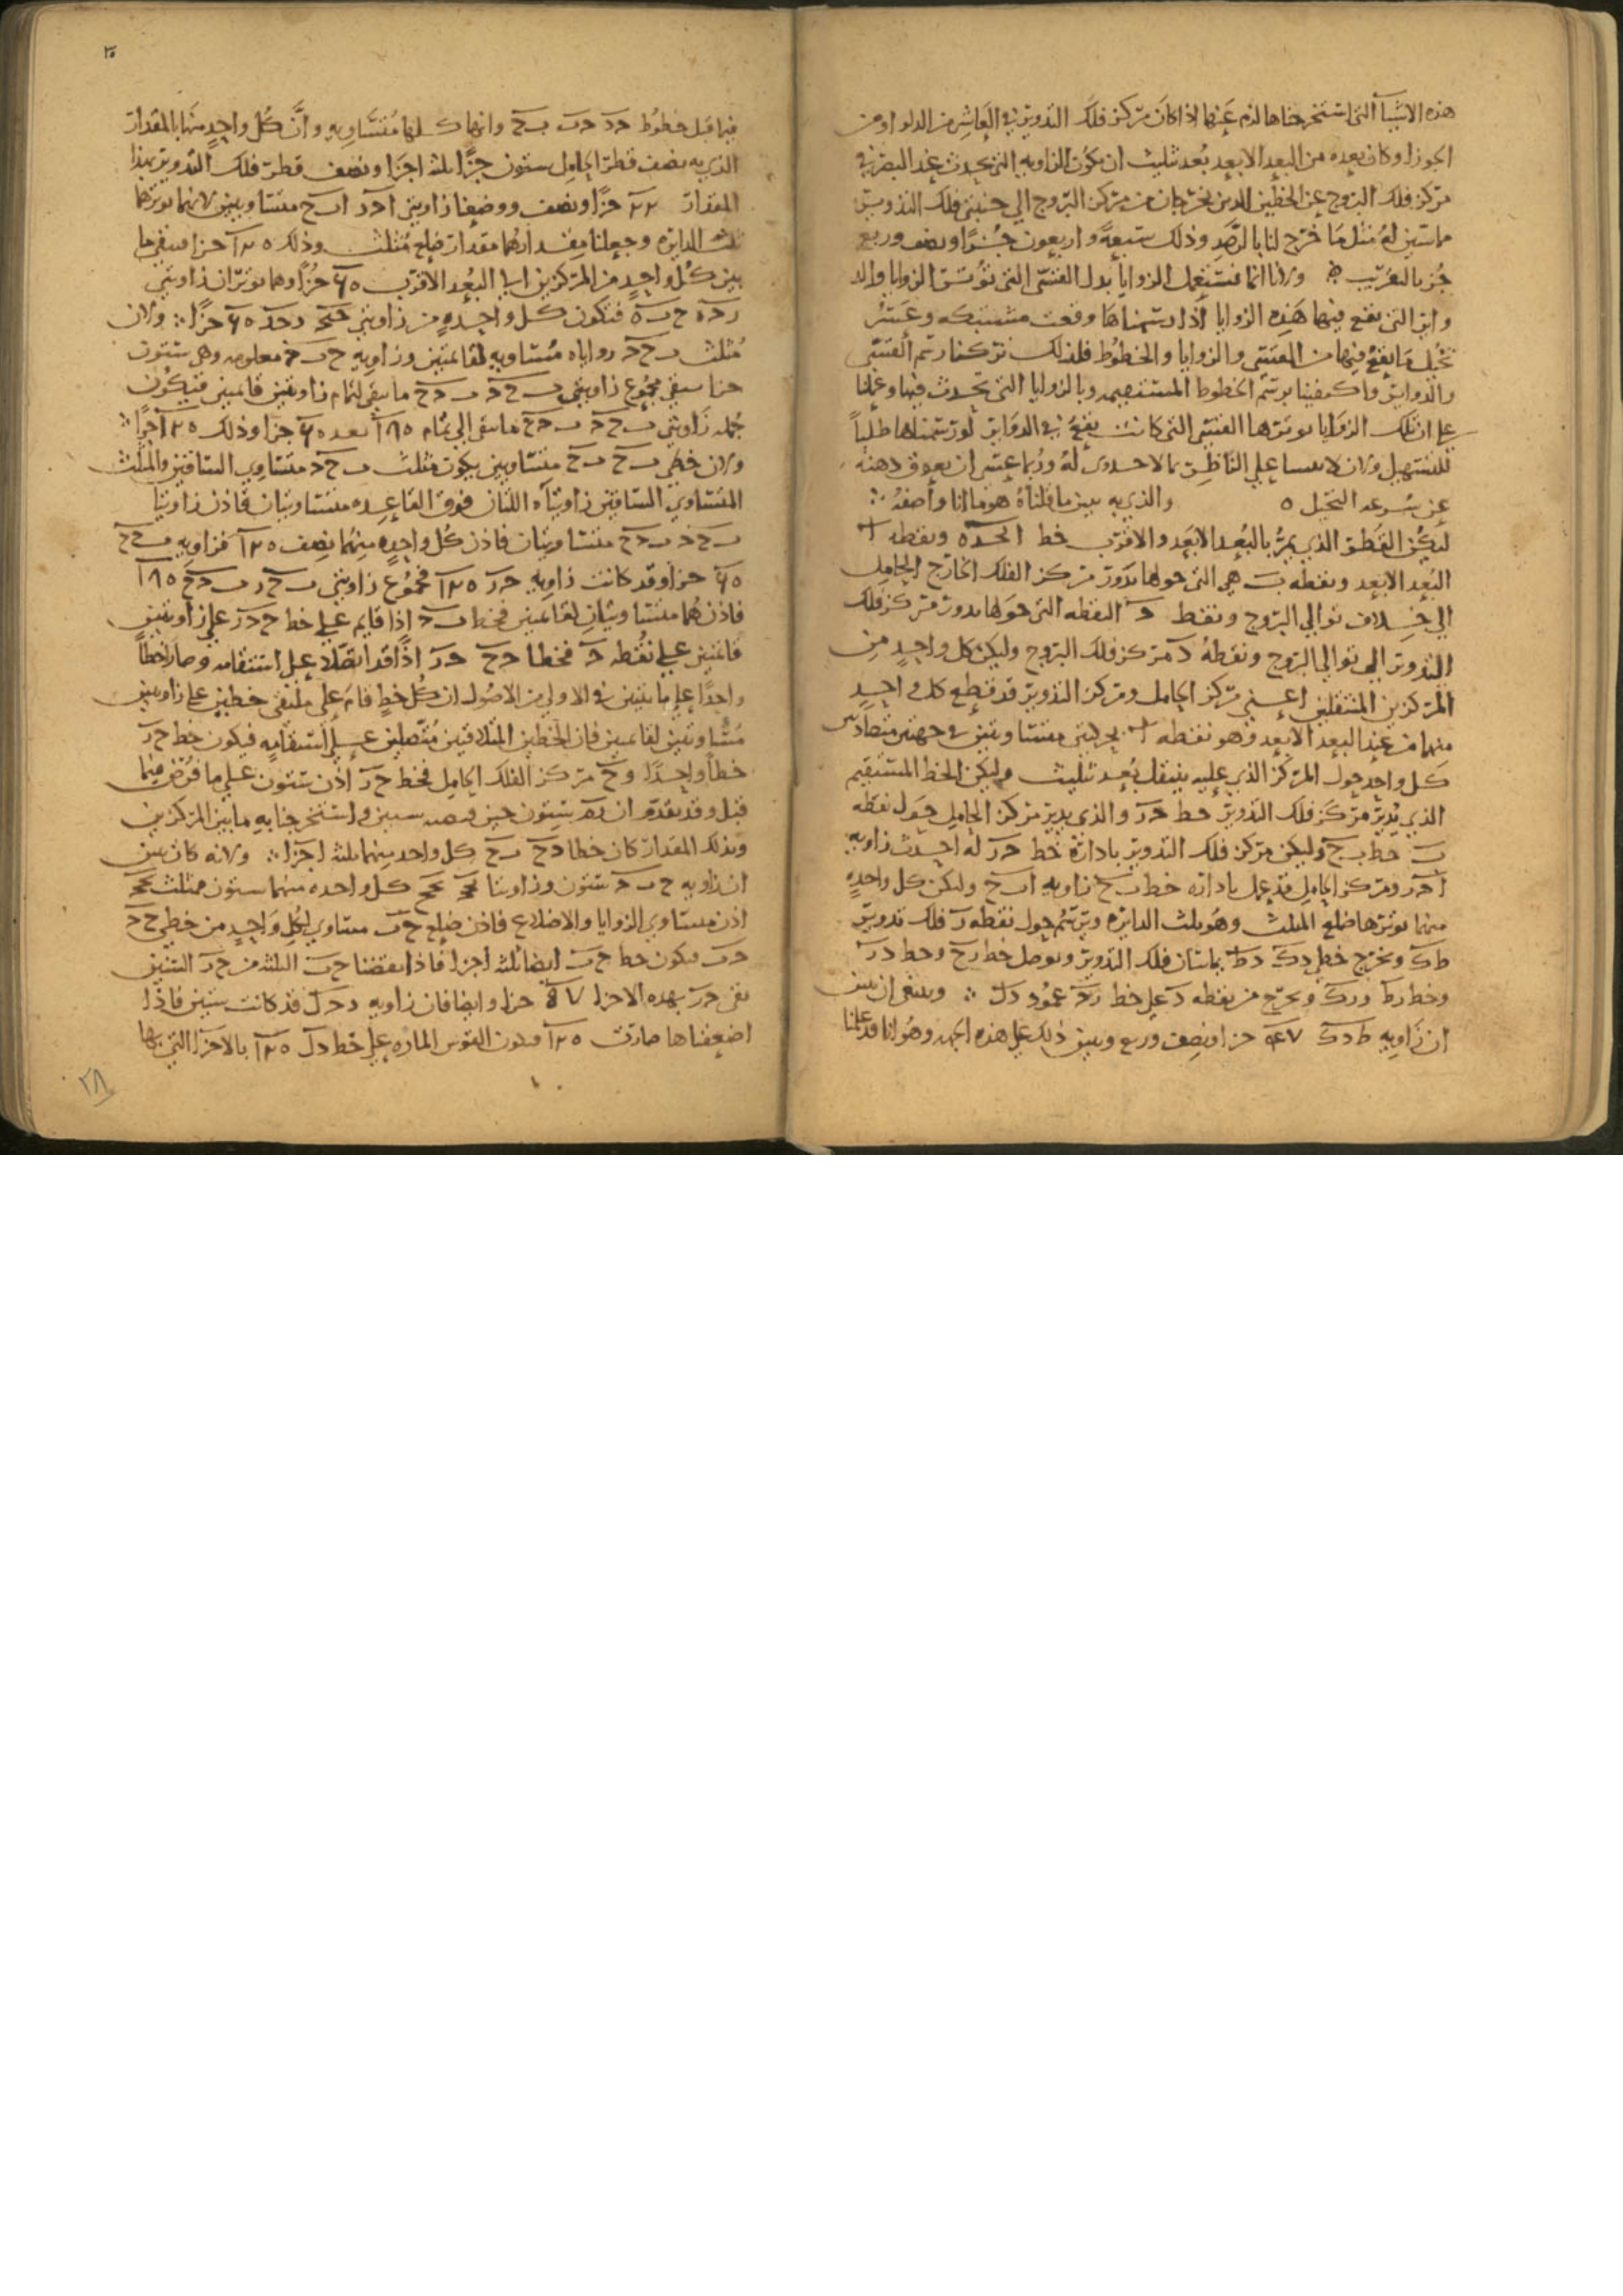 هذه الاشيآ التى استخرجناها لزم عنها اذا كان مركز فلك التدوير فى العاشر من الدلو او من
الجوزا وكان بعده من البعد الابعد بعد تثليث ان تكون الزاويه التى تحدث عند البصر فى
مركز فلك البروج عن الخطين الذين يخرجان من مركز البروج الي جنبتى فلك التدوير
مماسين له مثل ما خرج لنا بالرصد وذلك سبعة واربعون جزءًا ونصف وربع
جزء بالتقريب ولانا انما نستعمل الزوايا بدل القسى التى توترتها الزوايا والد
وابر التى تقع فيها هذه الزوايا اذا رسمناها وقعت مشتبكه وعسر
تخيل ما يقع فيها من القسي والزوايا والخطوط فلذلك تركنا رسم القسي
والدواير واكتفينا برسم الخطوط المستقيمه وبالزوايا التى تحدث فيها وعملنا
على ان تلك الزوايا توترها القسى التى كانت تقع فى الدواير لو رسمناها طلباً
للتسهيل ولان لا على الناظر بما لا جدوى له وربما عسى ان يعوق ذهنه
عن سرعه التخيل ٥ والذى به يبين ما قلناه هو ما انا واصفه
ليكن القطر الذي يمر بالبعد الابعد والاقرب خط ا ب ج د ه ونقطه ا
البعد الابعد ونقطه ب هي التى حولها يدور مركز الفلك الخارج الحامل
الي خلاف توالي البروج ونقطه ج النقطه التى حولها يدور مركز فلك
التدوير الى توالي البروج ونقطة د مركز فلك البروج وليكن كل واحد من
المركزين المنتقلين اعني مركز الحامل ومركز التدوير قد قطع كل واحد
منهما من عند البعد الابعد وهو نقطه ا بحركتى متساويتين فى جهتين متضادتين
كل واحد حول المركز الذي عليه ينتقل بُعد تثليث وليكن الخط المستقيم
الذي يدير مركز فلك التدوير خط ج ر والذى يدير مركز الحامل حول نقطه
ب خط ب ح وليكن مركز فلك التدوير بادارة خط ج ر له احدث زاويه
ا ج ر ومركز الحامل قد عمل بادارة خط ب ح زاويه ا ب ح وليكن كل واحده
منهما توترها ضلع المثلث وهو ثلث الدايره ويرسم حول نقطه ر فلك تدوير
ط ك ونخرج خطى د ك د ط يماسان فلك التدوير ونوصل خط ر ح وخط د ر
وخط ر ط ر ك ونخرج من نقطه د على خط ر ج عمود د ل وينبغى ان نبين
ان زاويه ط د ك ٤٧ جزا ونصف وربع ونبين ذلك على هذه الجهه وهو انا قد علمنا
فيما قبل خطوط ج د ج ب ب ح وانها كلها متساويه وان كل واحد منها بالمقدار
الذي به نصف قطر الحامل ستون جزًا ثلثه اجزا ونصف قطر فلك التدوير بهذا
المقدار ٢٢ جزًا ونصف ووضعنا زاويتى ا ج ر ا ب ح متساويتين لانهما توترهما
ثلث الدايره وجعلنا مقدارهما مقدار ضلع مثلث وذلك ١٢٠ جزا فيبقى ما
بين كل واحد من المركزين الى البعد الاقرب ٦٠ جزًا وهما توتران زاويتى
ر ج ه ح ب ه فتكون كل واحده من زاويتى ح ب ج ر ج د ٦٠ جزًا ولان
مثلث ب ح ج زواياه مساويه لقايمتين وزاويه ح ب ج معلومه وهى ستون
جزا يبقى مجموع زاويتى ب ح ج ب ج ح ما يبقى لتمام زاويتين قايمتين فيكون
جمله زاويتي ب ح ج ب ج ح ما بقى الي تمام ١٨٠ بعد ٦٠ جزا وذلك ١٢٠ جزًا
ولان خطي ب ج ب ح متساويين يكون مثلث ب ح ج متساوي الساقين والمثلث
المتساوي الساقين زاويتاه اللتان فوق القاعده متساويتان فاذن زاويتا
ب ح ج ب ج ح متساويتان فاذن كل واحده منهما نصف ١٢٠ فزاويه ب ج ح
٦٠ جزا وقد كانت زاويه ب ج ر ١٢٠ فمجموع زاويتى ب ج ر ب ج ح ١٨٠
فاذن هما متساويتان لقايمتين فخط ب ج اذا قايم على خط ح ج ر على زاويتين
قايمتين على نقطه ج فخطا ج ح ج ر اذًا قد اتصلا على استقامه وصارا خطاً
واحدًا على ما تبين فى الاولى من الاصول ان كل خط قام على ملتقى خطين على زاويتين
مساويتين لقايمتين فان الخطين المتلاقيين متصلين على استقامه فيكون خط ح ج ر
خطاً واحدًا وح مركز الفلك الحامل فخط ح ر اذن ستون على ما فرض فيما
قبل وقد تقدم ان ستون حين واستخرجنا به ما بين المركزين
وبذلك المقدار كان خطا د ج ب ح كل واحد منهما ثلثه اجزا ولانه كان تبين
ان زاويه ح ب ج ستون وزاويتا كل واحده منهما ستون فمثلث
اذن متساوي الزوايا والاضلاع فاذن ضلع ج ب مساوي لكل واحد من خطي ح ج
ح ب فيكون خط ح ج ايضا ثلثه اجزا فاذا نقصنا ح ج الثلثه من ح ر الستين
بقى ج ر بهذه الاجزا ٥٧ جزا وايضا فان زاويه د ج ل قد كانت ستين فاذا
اضعفناها صارت ١٢٠ فتكون القوس الماره على خط د ل ١٢٠ بالاجزا التى بها
٢٨